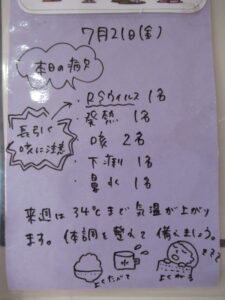 7月21日(金)
本日の病欠
・RSウイルス 1名
・発熱 1名
咳 2名
・下痢 1名
・鼻水 1名
長引く
咳に注意
来週は34℃まで気温が上がり
ます。体調を整えて備えましょう。
よくたべて
よくねる